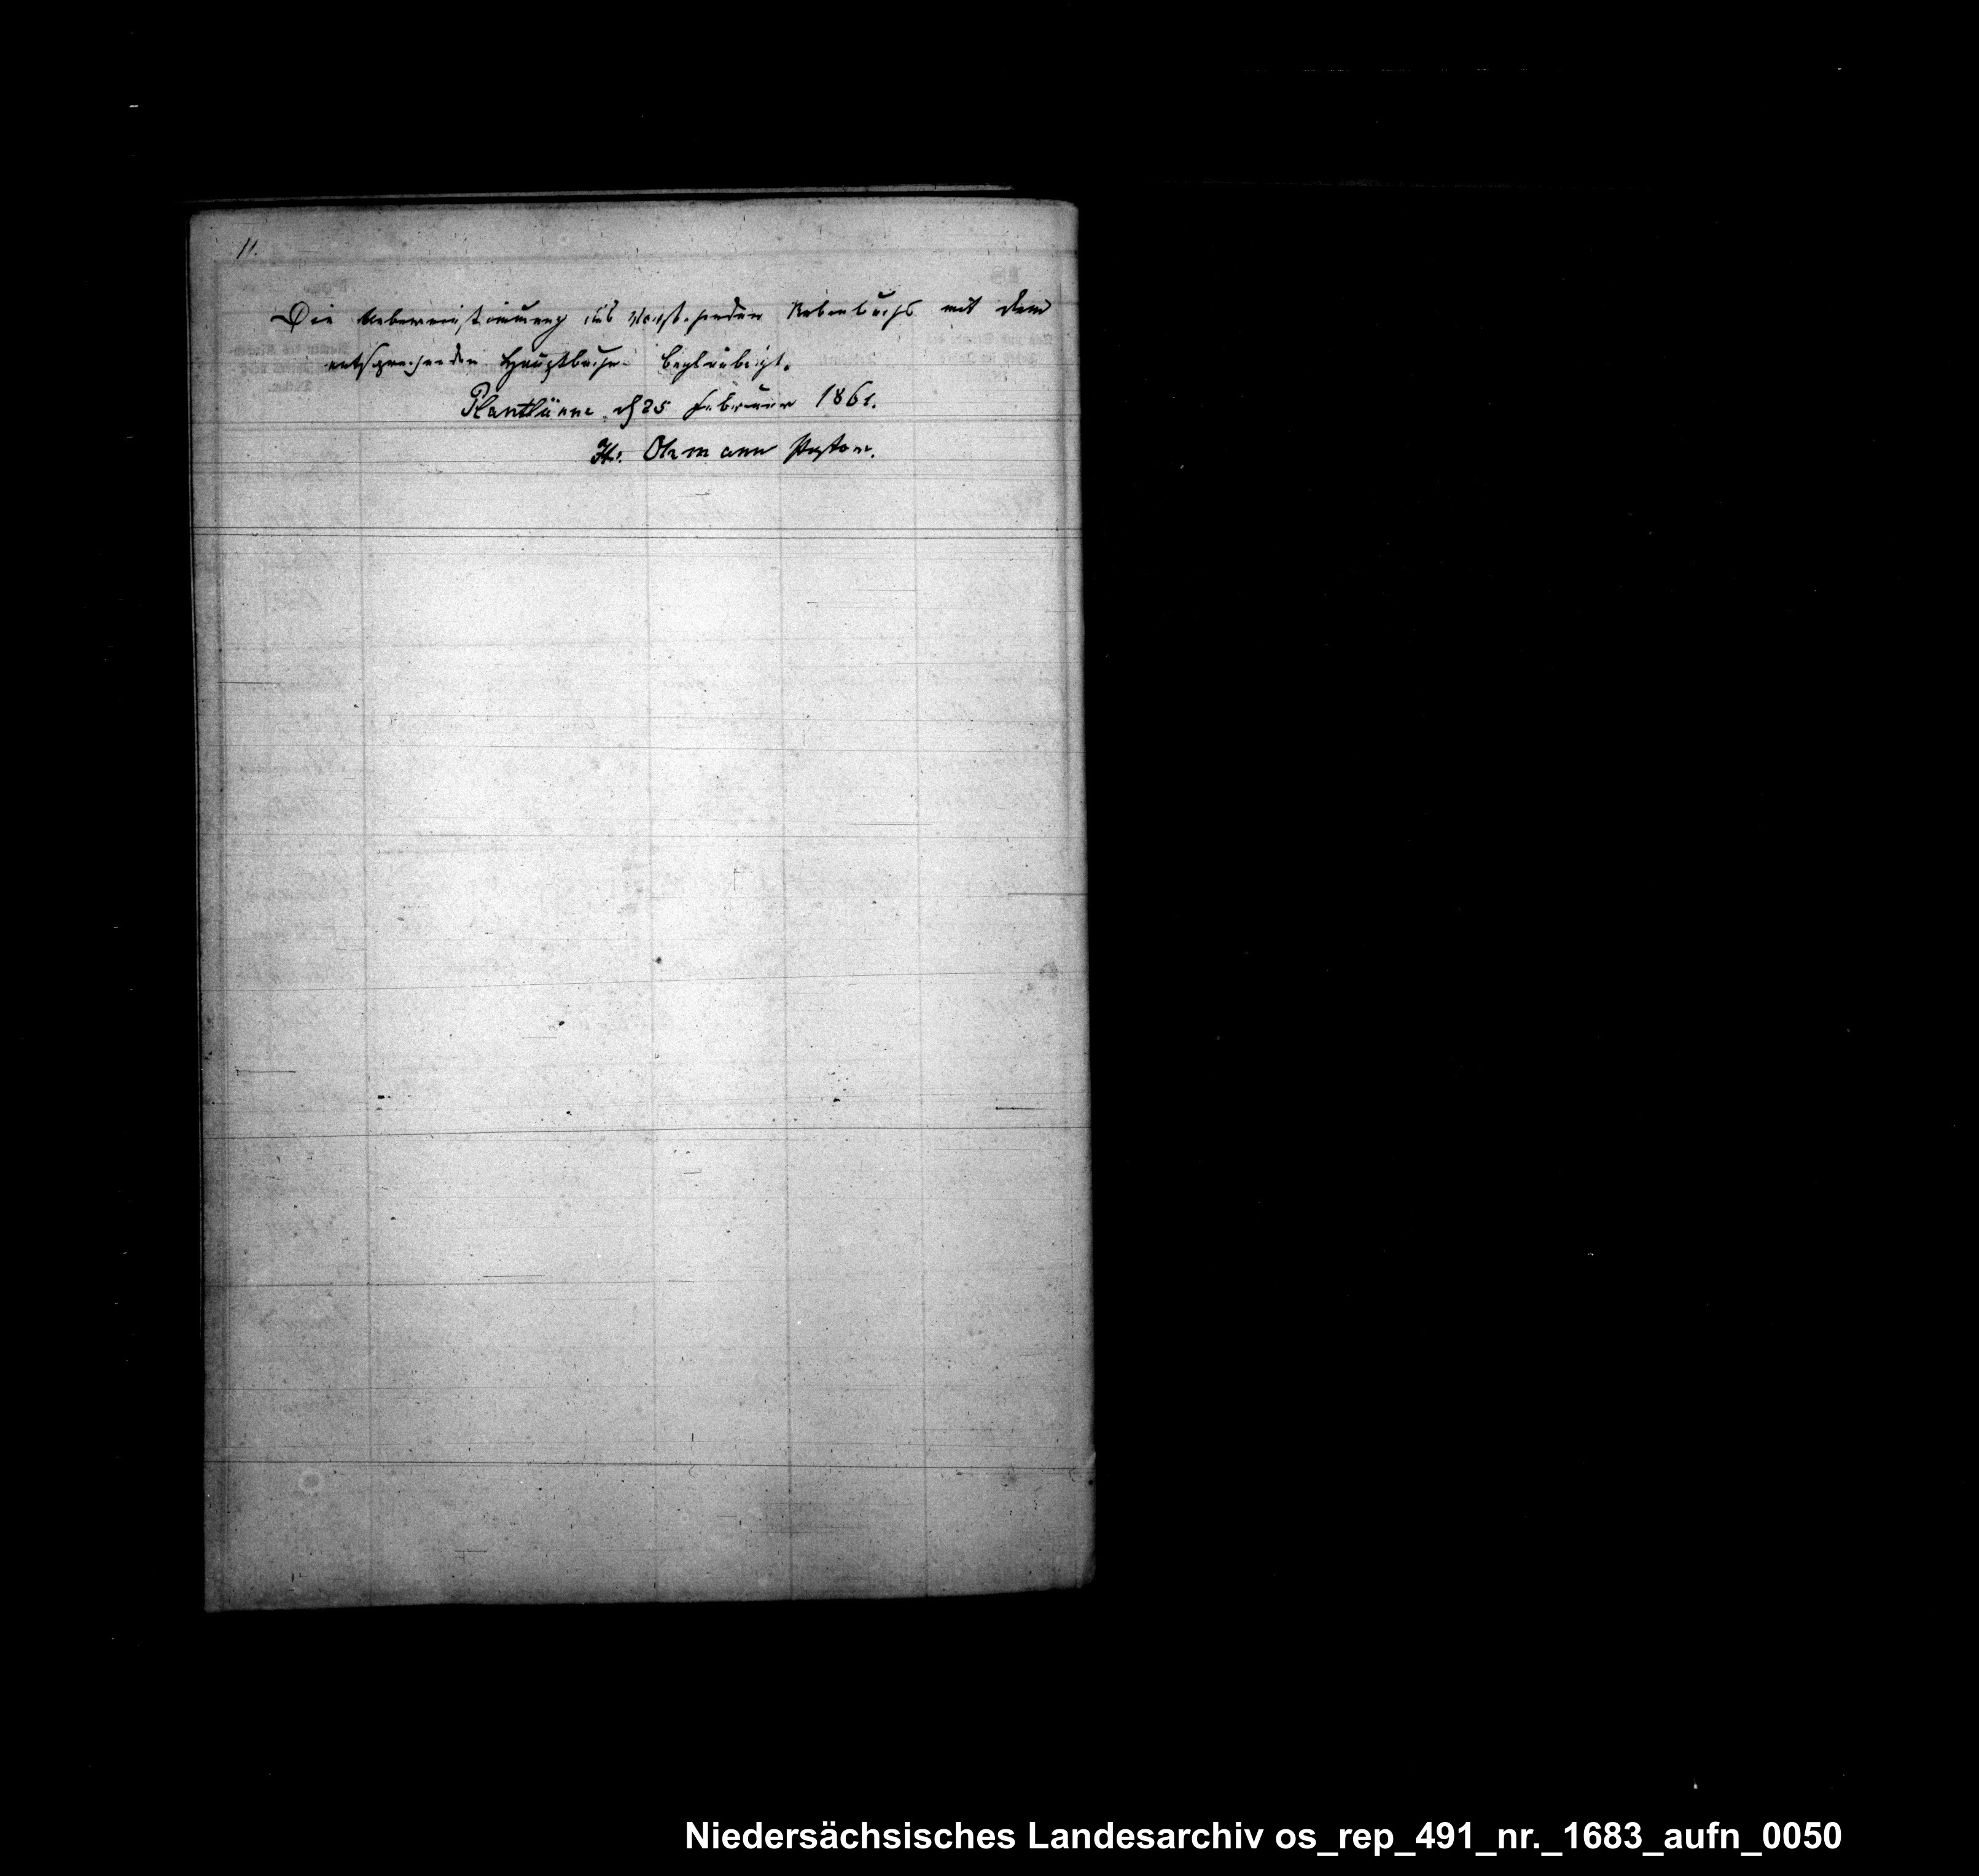 11.
Die Uebereinstimmung des vorstehenden Nebenbuchs mit dem
entsprechenden Hauptbuche beglaubigt.
Plantlünne d 25 Februar 1861.
Ohmann Pastor.
Niedersächsisches Landesarchiv os_rep_491_nr._1683_aufn_0050